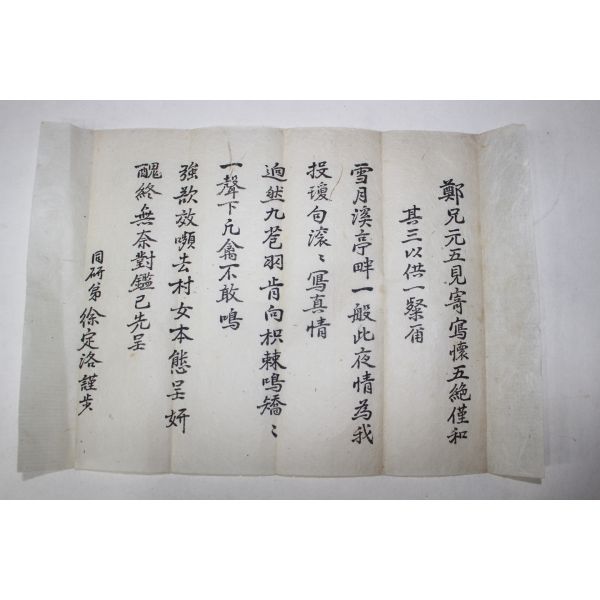 鄭兄元五見寄寫懷五絶僅和
其三以供一粲爾
雪月溪亭畔一般此夜情為我
投瓊句滾〻寫真情
逈然九苞羽肯向枳棘鳴矯〻
一聲下凡禽不敢鳴
強欲效嚬去村女本態呈妍
醜終無奈對鑑已先呈
同研弟徐定洛謹步